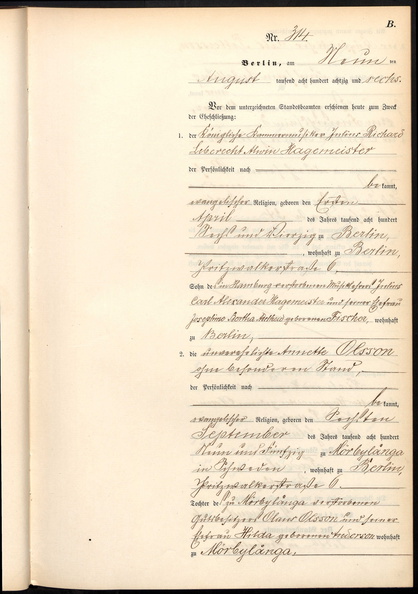 B.
Nr. 314.
Berlin, am Neun ten
August tausend acht hundert achtzig und sechs.
Vor dem unterzeichneten Standesbeamten erschienen heute zum Zweck
der Eheschließung:
1. der Königliche Kammermusiker Julius Richard
Leberecht Alwin Hagemeister
der Persönlichkeit nach
be kannt,
evangelischer Religion, geboren den Ersten
April des Jahres tausend acht hundert
Sechs und Vierzig zu Berlin,
, wohnhaft zu Berlin,
Pritzwalkerstraße 6
Sohn des in Hamburg verstorbenen Musiklehrers Julius
Carl Alexander Hagemeister und seiner Ehefrau
Josephine Bertha geborenen Fischer, wohnhaft
zu Berlin,
2. die unverehelichte Annette Olsson
ohne besonderen Stand,
der Persönlichkeit nach
be kannt,
evangelischer Religion, geboren den Sechsten
September des Jahres tausend acht hundert
Neun und Fünfzig zu Mörbylånga
in Schweden, wohnhaft zu Berlin,
Pritzwalkerstraße 6
Tochter des zu Mörbylånga verstorbenen
Gutsbesitzers Claus Olsson und seiner
Ehefrau Hilda geborenen Anderson wohnhaft
zu Mörbylånga.